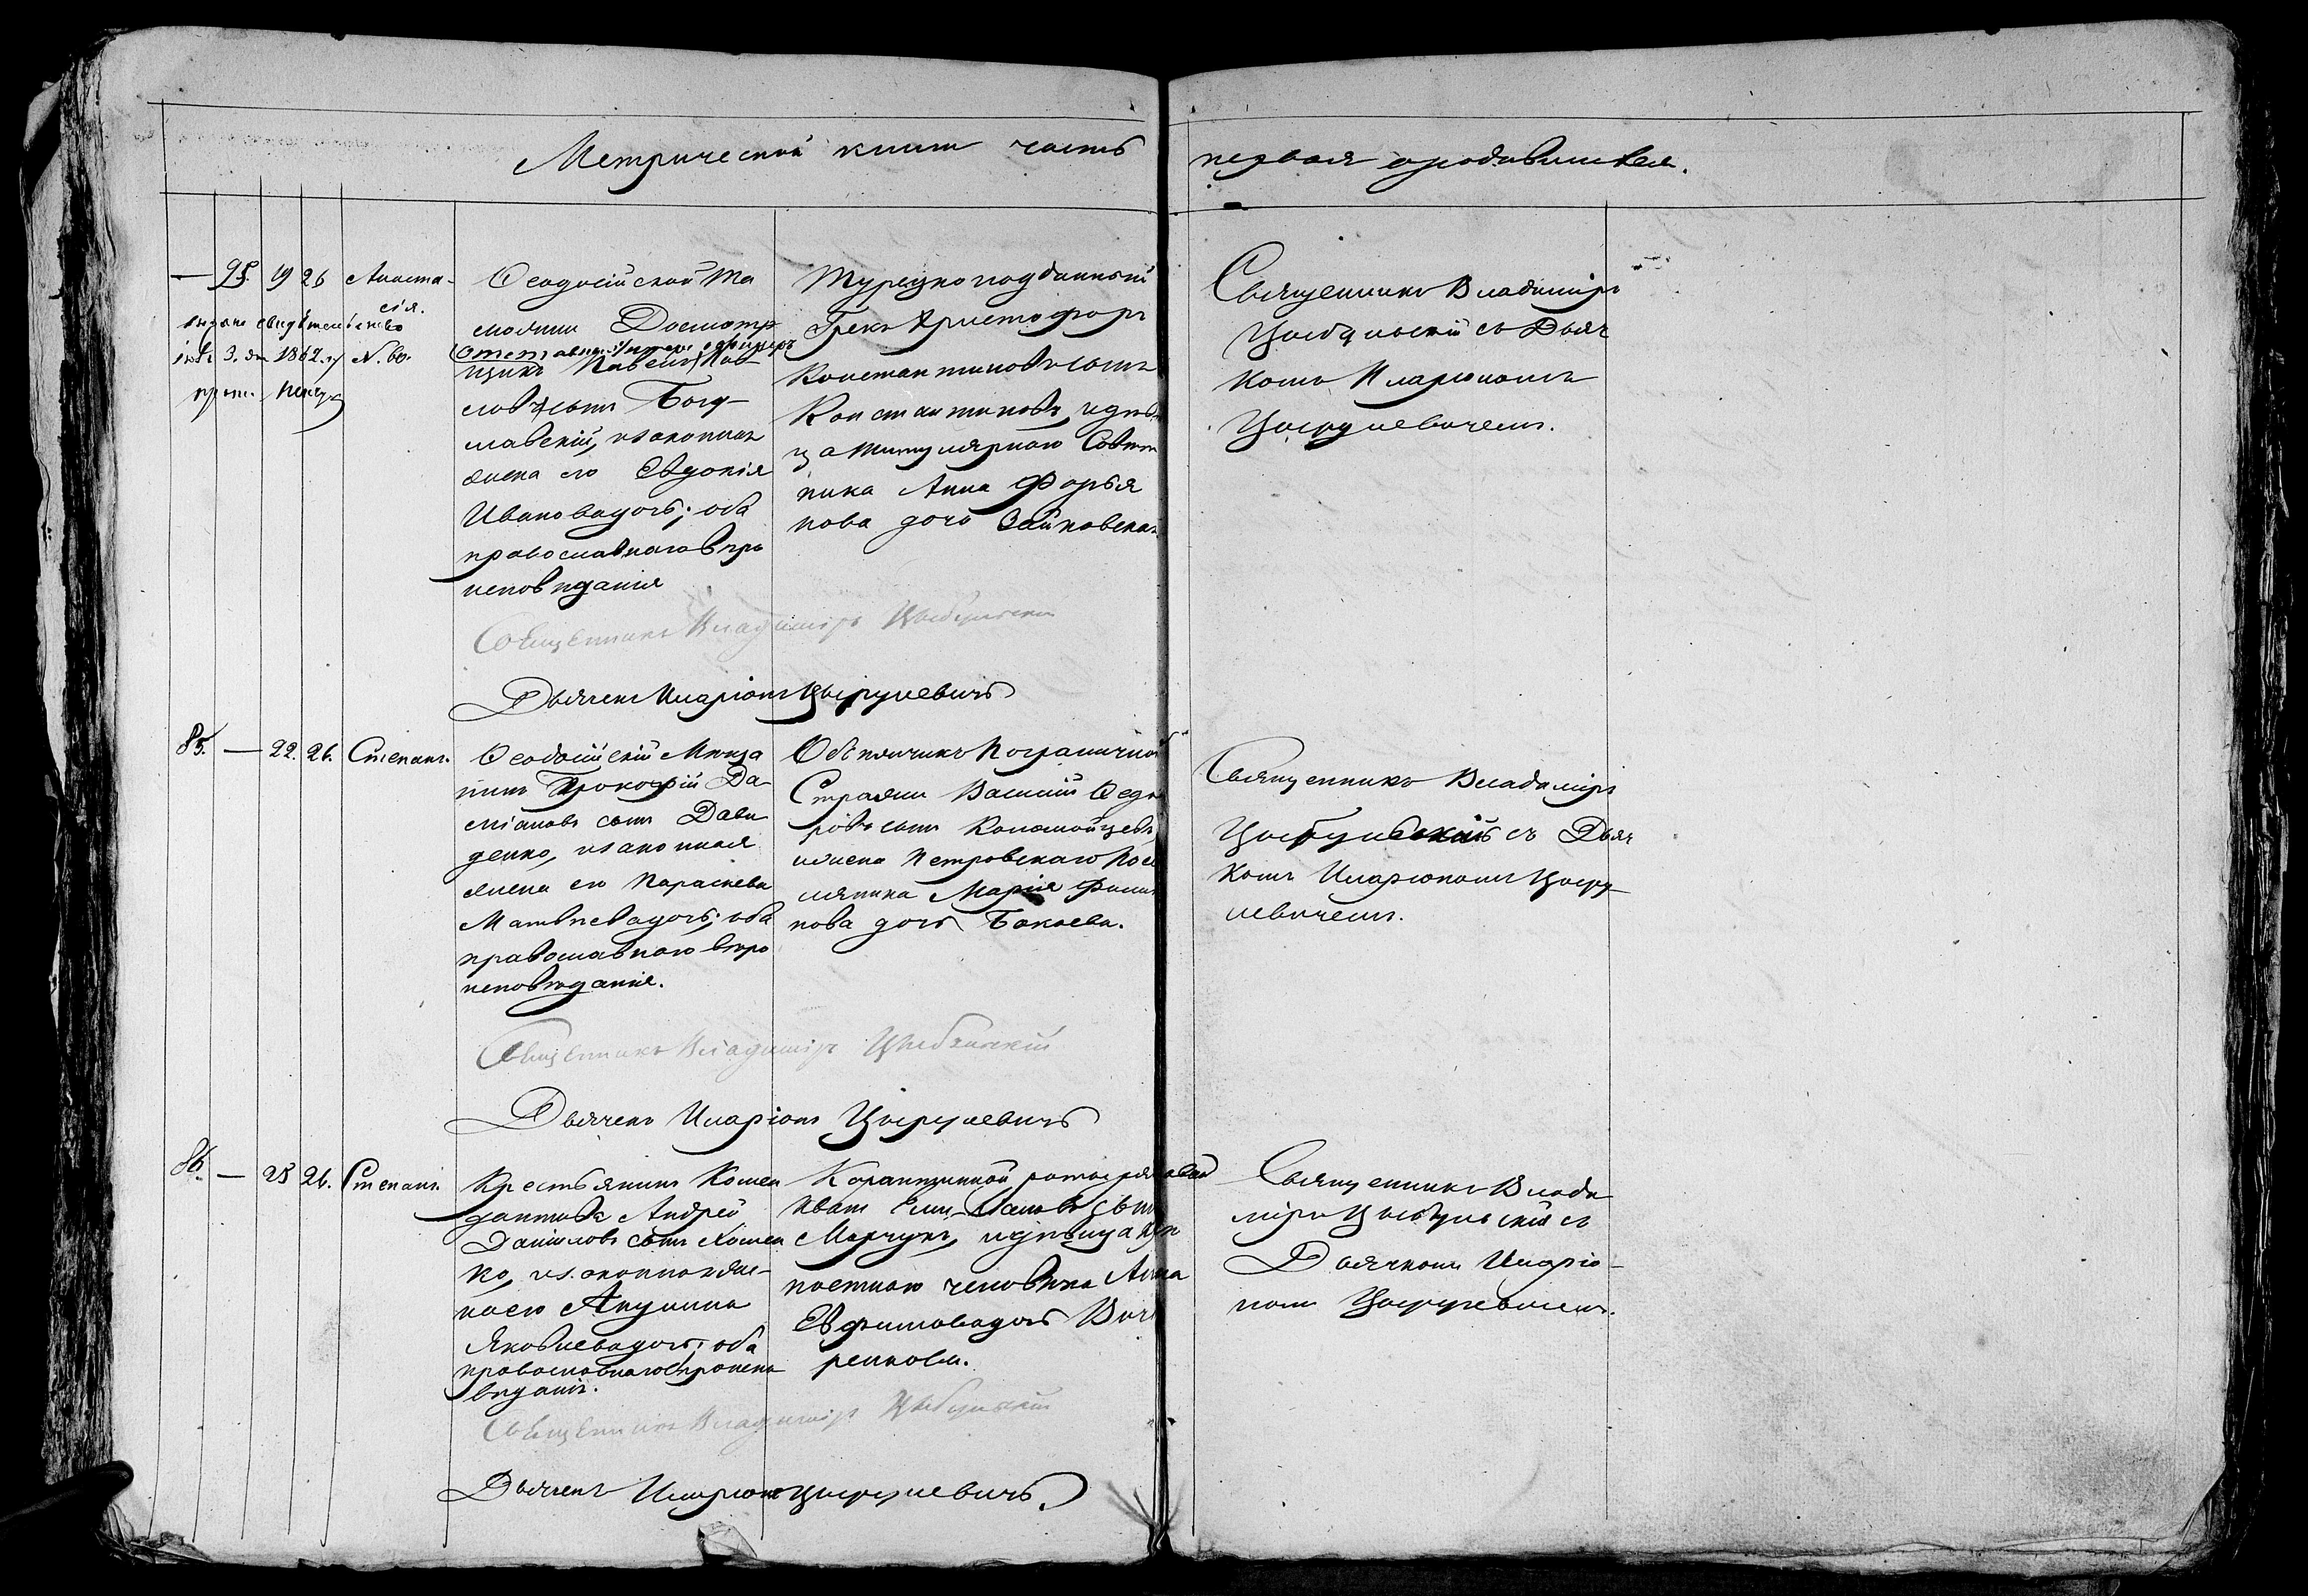 Метрической книги часть первая о родившихся.
— 95. 19 26 Анаста-
сія.
выдано свидѣтельство
1862. №
Ѳеодосійской Та
можни Досмотр
щикъ Павелъ Пав
ловъ сынъ Богу-
славскій, и законная
жена его Евдокія
Иванова дочь; оба
православнаго вѣро
исповѣданія
Турецкоподданный
Грекъ Христофоръ
Константиновъ сынъ
Константиновъ, и дѣви
ца титулярнаго Совѣт
ника Анна
нова дочь Зайковская
Священникъ Владиміръ
Цыбульскій съ Дьяч
комъ Иларіономъ
Цыерулевичемъ.
Священникъ Владиміръ Цыбульскій
Дьячекъ Иларіонъ Цыерулевичъ
85. — 22. 26. Степанъ.
Ѳеодосійскій Мѣща
нинъ Прокофій Да-
міановъ сынъ Дави
денко, и законная
жена его Параскева
Матвѣева дочь; оба
православнаго вѣро
исповѣданія.
Объѣзчикъ Пограничной
Стражи Василій Ѳедо
ровъ сынъ Коломойцевъ,
и жена Петровскаго Посе
лянина Марія Филип
пова дочь Бокаева.
Священникъ Владиміръ
Цыбульскій съ Дьяч
комъ Иларіономъ Цыеру-
левичемъ.
Священникъ Владиміръ Цыбульскій
Дьячекъ Иларіонъ Цыерулевичъ
86. — 25 26. Степанъ.
Крестьянинъ
Андрей
Даниловъ сынъ
ко, и законная же-
на его Акулина
Яковлева дочь; оба
православнаго вѣроиспо
вѣданія.
Карантинной роты рядовой
сынъ
Марчукъ, и дѣвица
человѣка Анна
Евфимова дочь
ренкова.
Священникъ Влади
міръ Цыбульскій съ
Дьячкомъ Иларіо-
номъ Цыерулевичемъ.
Священникъ Владиміръ Цыбульскій
Дьячекъ Иларіонъ Цыерулевичъ.